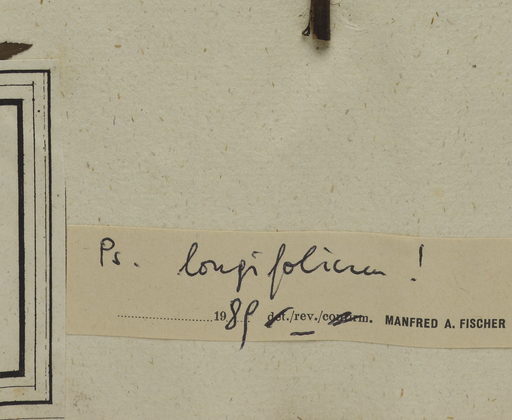 Ps. longifolium !
1989 det./rev./confirm. MANFRED A. FISCHER